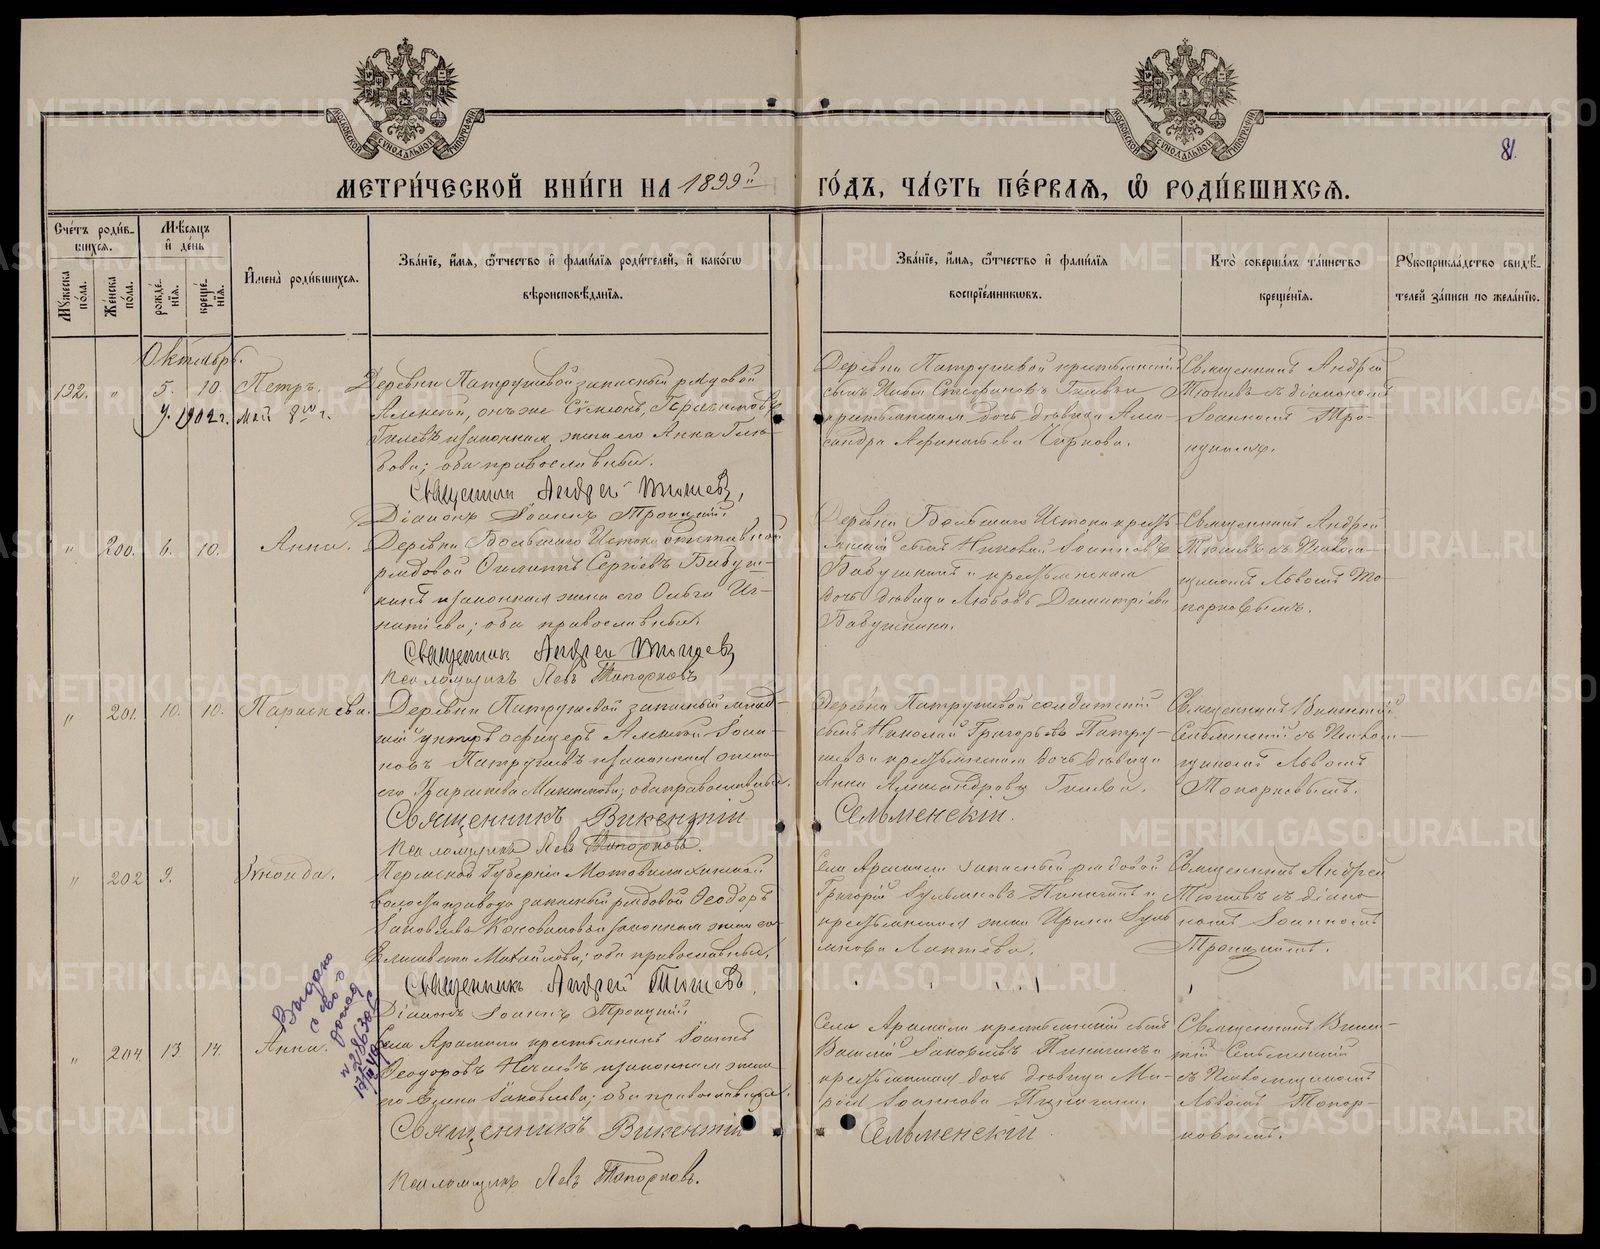 МОСКОВСКОЙ СУНОДАЛЬНОЙ ТИПОГРАФІИ
МОСКОВСКОЙ СУНОДАЛЬНОЙ ТИПОГРАФІИ
81.
МЕТРИ́ЧЕСКОЙ КНИ́ГИ НА 1899й ГО́ДЪ, ЧА́СТЬ ПЕ́РВАѦ, Ѡ҆ РОДИ́ВШИХСѦ.
Сче́тъ роди́в-
шихся.
Мꙋ́жеска по́ла.
Же́нска по́ла.
Мѣ́сяцъ и҆ де́нь
рожде́-
нїѧ.
креще́-
нїѧ.
И҆мена̀ роди́вшихсѧ.
Зва́нїе, и҆́мѧ, ѻ҆́тчество и҆ фами́лїѧ роди́телей, и҆ како́гѡ
вѣроисповѣ́данїѧ.
Зва́нїе, и҆́мѧ, ѻ҆́тчество и҆ фами́лїѧ
воспрїе́мникѡвъ.
Кто̀ соверша́лъ та́инство
креще́нїѧ.
Рꙋкоприкла́дство свидѣ́-
телей за́писи по жела́нїю.
Октябрь.
192. " 5. 10. Петръ.
Деревни Патрушевой запасный рядовой
Алексѣй, онъ же Сѵмеонъ, Герасимовъ
Гилевъ и законная жена его Анна Глѣ-
бова; оба православные.
Священникъ Андрей Тюшевъ,
Діаконъ Іоаннъ Троицкій.
Деревни Патрушевой крестьянскій
сынъ Стефановъ Гилевъ
крестьянская дочь дѣвица Алек-
сандра Афанасьева Чиркова.
Священникъ Андрей
Тюшевъ съ діакономъ
Іоанномъ Тро-
ицкимъ.
У. 1902 г. май 8го г.
" 200. 6. 10. Анна.
Деревни Большаго Истока отставной
рядовой Филиппъ Сергіевъ Бабуш-
кинъ и законная жена его Ольга Иг-
натіева; оба православные.
Священникъ Андрей Тюшевъ
Псаломщикъ Левъ Топорковъ
Деревни Большаго Истока кресть-
янскій сынъ Николай Іоанновъ
Бабушкинъ и крестьянская
дочь дѣвица Любовь Димитріева
Бабушкина.
Священникъ Андрей
Тюшевъ съ Псалом-
щикомъ Львомъ То-
порковымъ.
" 201. 10. 10. Параскева.
Деревни Патрушевой запасный млад-
шій унтеръ офицеръ Алексѣй Іоан-
новъ Патрушевъ и законная жена
его Параскева Максимова; оба православные.
Священникъ Викентій Сельменскій.
Псаломщикъ Левъ Топорковъ.
Деревни Патрушевой солдатскій
сынъ Николай Григорьевъ Патру-
шевъ и крестьянская дочь дѣвица
Анна Александрова Гилева.
Священникъ Викентій
Сельменскій съ Псалом-
щикомъ Львомъ
Топорковымъ.
" 202 9. Зинаида.
Пермской Губерніи Мотовилихинской
волости завода запасный рядовой Ѳеодоръ
Іаковлевъ Коноваловъ и законная жена его
Елисавета Михайлова; оба православные.
Священникъ Андрей Тюшевъ
Діаконъ Іоаннъ Троицкій
Села Арамили запасный рядовой
Григорій Іуліановъ и
крестьянская жена Ирина Іуль-
янова Лаптева.
Священникъ Андрей
Тюшевъ съ діако-
номъ Іоанномъ
Троицкимъ.
Выдано
с-во о
рожд
№ 2286306
" 204 13 14. Анна.
Села Арамили крестьянинъ Іоаннъ
Ѳеодоровъ и законная жена
его Елена Іаковлева; оба православные.
Священникъ Викентій Сельменскій.
Псаломщикъ Левъ Топорковъ.
Села Арамили крестьянскій сынъ
Василій Іаковлевъ и
крестьянская дочь дѣвица Ма-
рія Іоаннова
Священникъ Викен-
тій Сельменскій
съ Псаломщикомъ
Львомъ Топор-
ковымъ.
METRIKI.GASO-URAL.RU